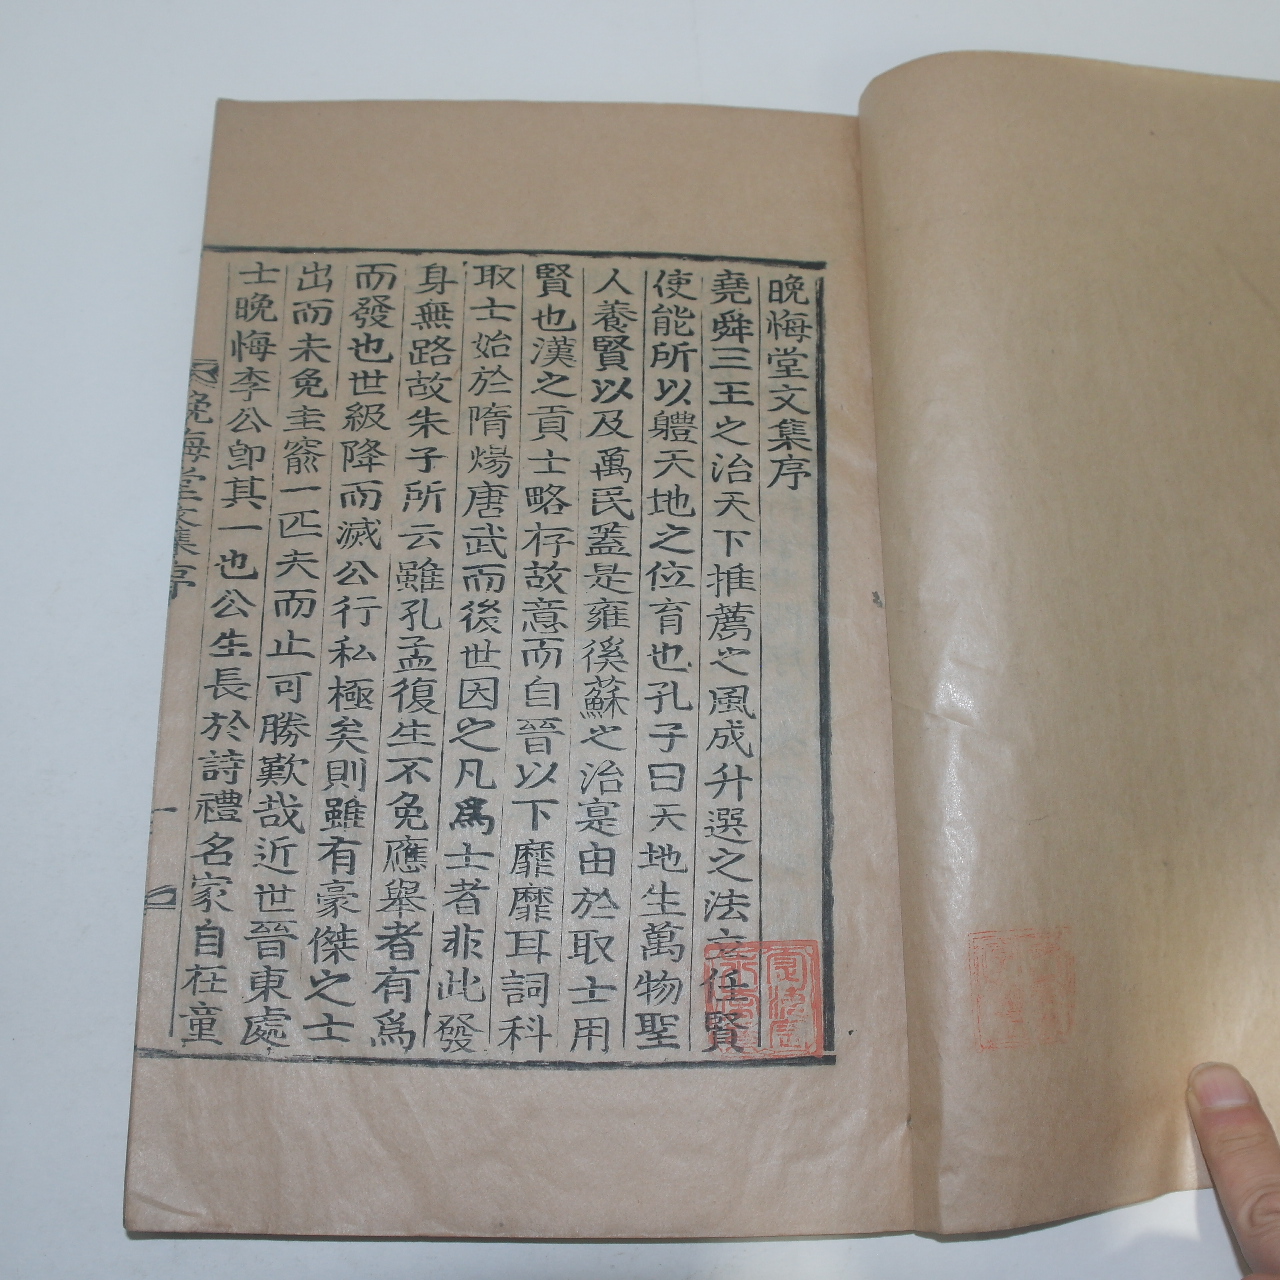 晚悔堂文集序
堯舜三王之治天下推薦之風成升選之法立任賢
使能所以軆天地之位育也孔子曰天地生萬物聖
人養賢以及萬民蓋是雍徯蘇之治寔由於取士用
賢也漢之貢士略存故意而自晉以下靡靡耳詞科
取士始於隋煬唐武而後世因之凡爲士者非此發
身無路故朱子所云雖孔孟復生不免應舉者有爲
而發也世級降而滅公行私極矣則雖有豪傑之士
出而未免圭窬一匹夫而止可勝歎哉近世晉東處
士晚悔李公卽其一也公生長於詩禮名家自在童
晚悔堂文集序
一